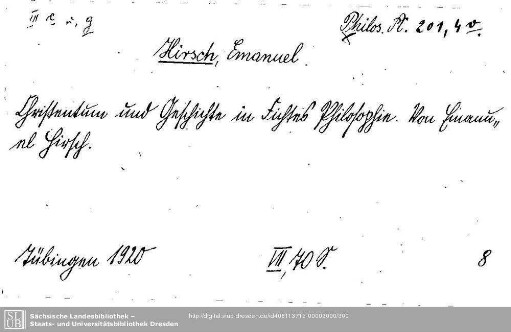 III c u. g
Philos. A. 201, 4 v.
Hirsch, Emanuel
Christentum und Geschichte in Fichtes Philosophie. Von Emanu„
el Hirsch.
Tübingen 1920 VII, 70 S. 8
Sächsische Landesbibliothek –
Staats- und Universitätsbibliothek Dresden